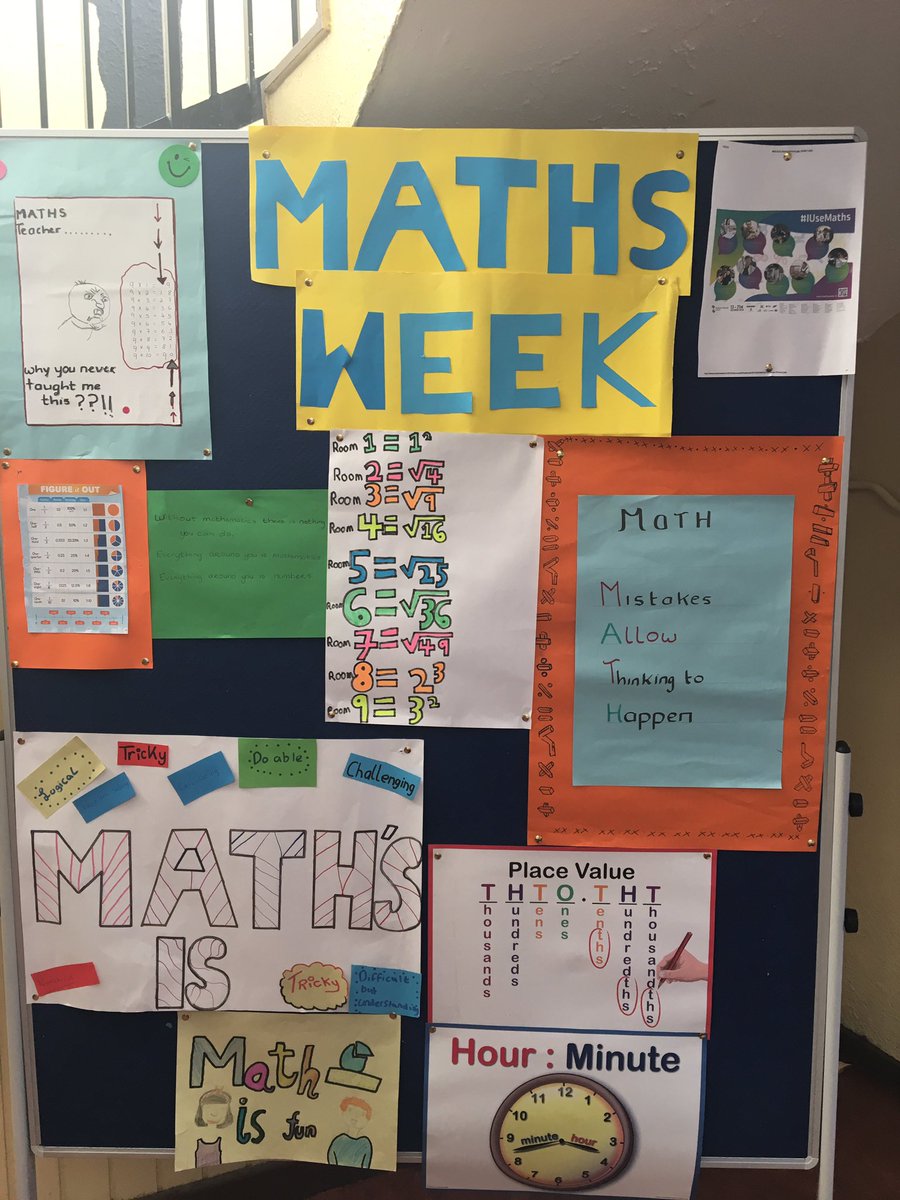 MATHS
WEEK
#IUseMaths
MATHS
Teacher.........
9 x 1 = 0 9
9 x 10 = 9 0
why you never
taught me
this ??!!
FIGURE it OUT
Without mathematics there is nothing
you can do.
Everything around you is mathematics
Everything around you is numbers
Room 1 = 1²
Room 2 = √4
Room 3 = √9
Room 4 = √16
5 = √25
Room 6 = √36
Room 7 = √49
Room 8 = 2³
Room 9 = 3²
MATH
Mistakes
Allow
Thinking to
Happen
Logical
Tricky
Do able
Challenging
MATH'S
IS
Tricky
Difficult
but
Understanding
Place Value
T H T O . T H T
Thousands
Hundreds
Tens
Ones
Tenths
Hundredths
Thousandths
Math
is fun
Hour : Minute
12
1
2
3
4
5
6
7
8
9
10
11
minute
hour